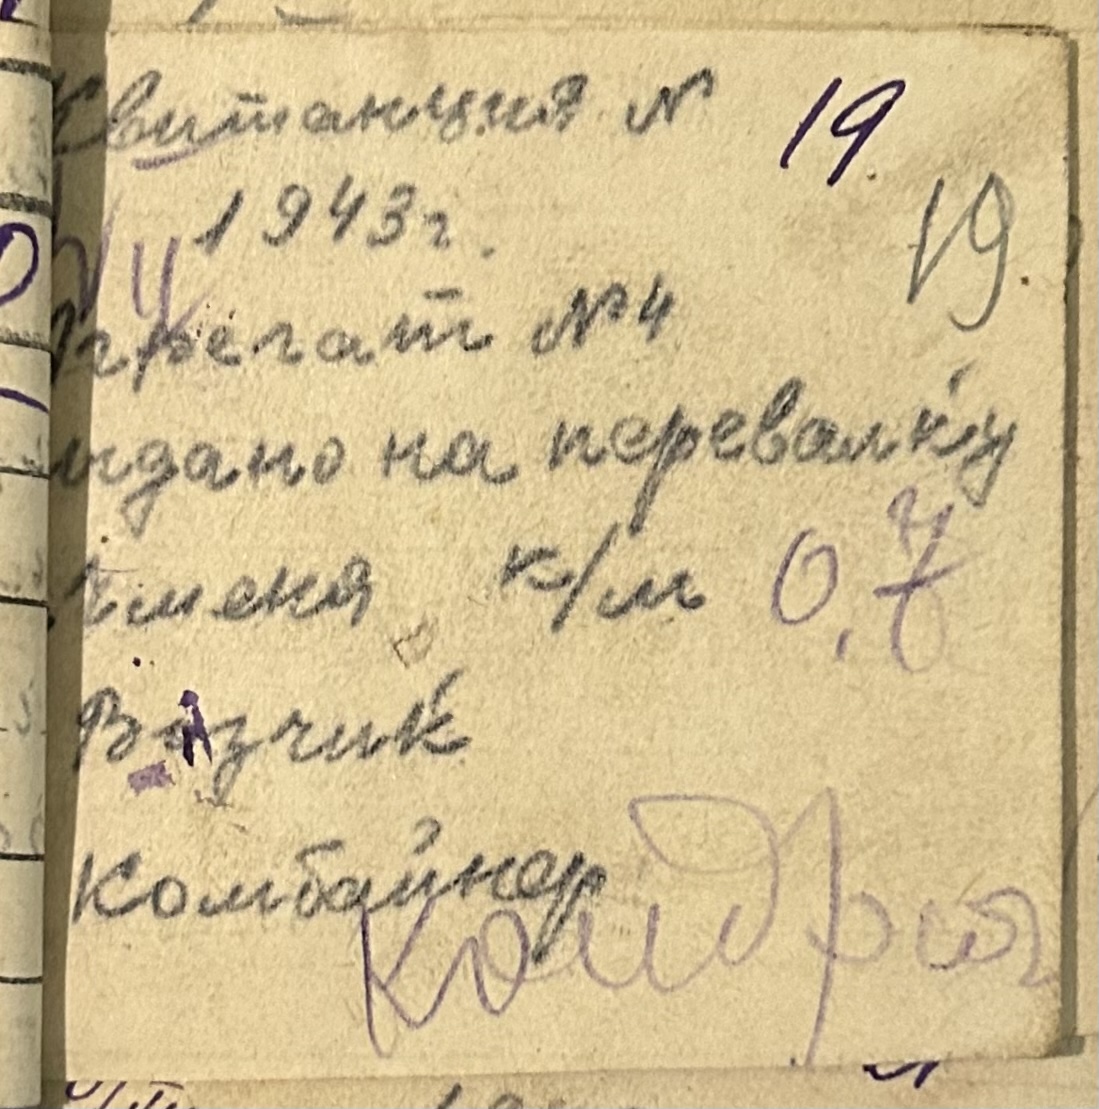 Квитанция № 19.
1943г. 19.
Агрегат №4
идано на перевалку
ямменя к/м 0,7
Вазчик
Комбайнер